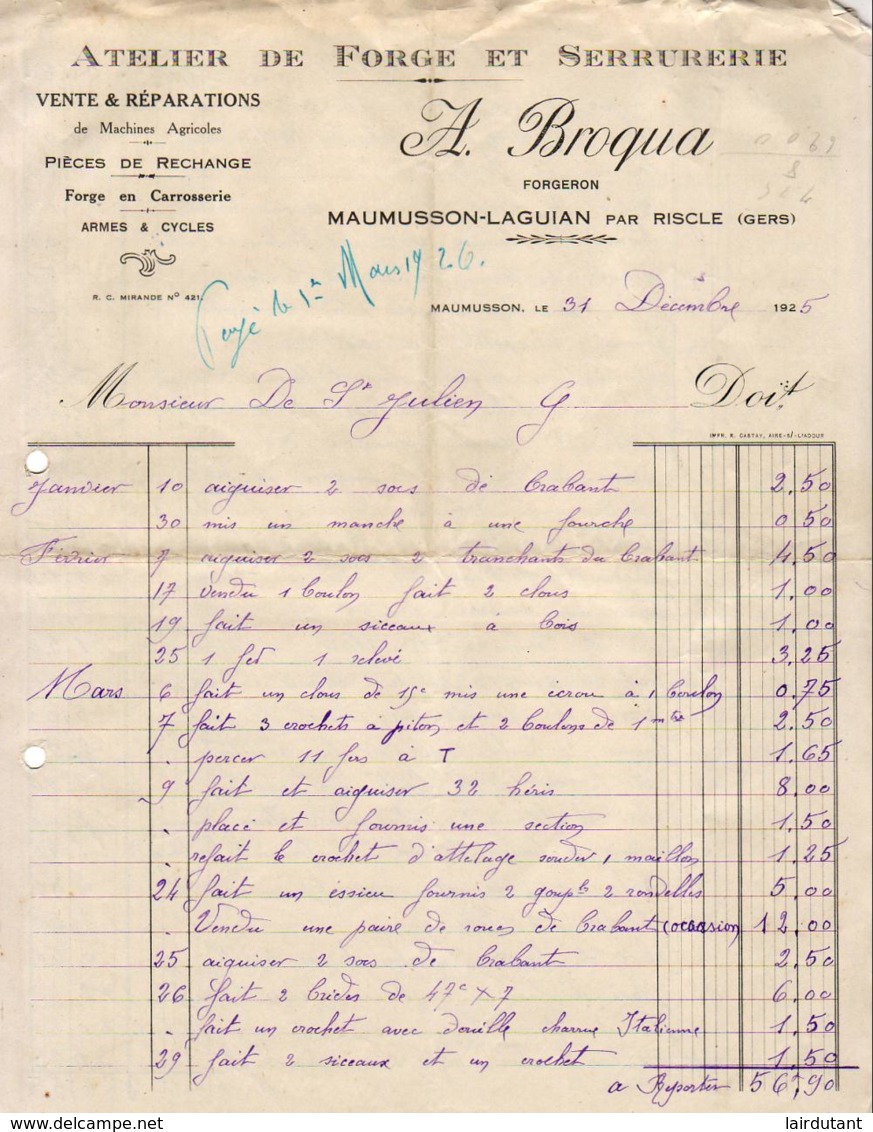 ATELIER DE FORGE ET SERRURERIE
VENTE & RÉPARATIONS
de Machines Agricoles
PIÈCES DE RECHANGE
Forge en Carrosserie
ARMES & CYCLES
R. C. MIRANDE Nº 421
A. Broqua
FORGERON
MAUMUSSON-LAGUIAN PAR RISCLE (GERS)
Payé le 1er Mars 1926.
MAUMUSSON, LE 31 Décembre 1925
Monsieur De St Julien G Doit
IMPR. R. CASTAY, AIRE-S/-L'ADOUR
Janvier 10 aiguiser 2 socs de brabant 2,50
30 mis un manche à une fourche 0,50
Février 7 aiguiser 2 socs 2 tranchants du brabant 4,50
17 Vendu 1 boulon fait 2 clous 1,00
19 fait un siceaux à bois 1,00
25 1 fer 1 relevé 3,25
Mars 6 fait un clous de 15c mis une écrou à 1 boulon 0,75
7 fait 3 crochets à piton et 2 boulons de 1 mtre 2,50
. percer 11 fers à T 1,65
9 fait et aiguiser 32 héris 8,00
. placé et fournis une section 1,50
. refait le crochet d'attelage souder 1 maillon 1,25
24 fait un éssieu fournis 2 gouples 2 rondelles 5,00
. Vendu une paire de roues de brabant (occasion) 12,00
25 aiguiser 2 socs de brabant 2,50
26 fait 2 brides de 47c x 7 6,00
. fait un crochet avec douille charrue Italienne 1,50
29 fait 2 siceaux et un crochet 1,50
a Reporter 56,90
lairdutant